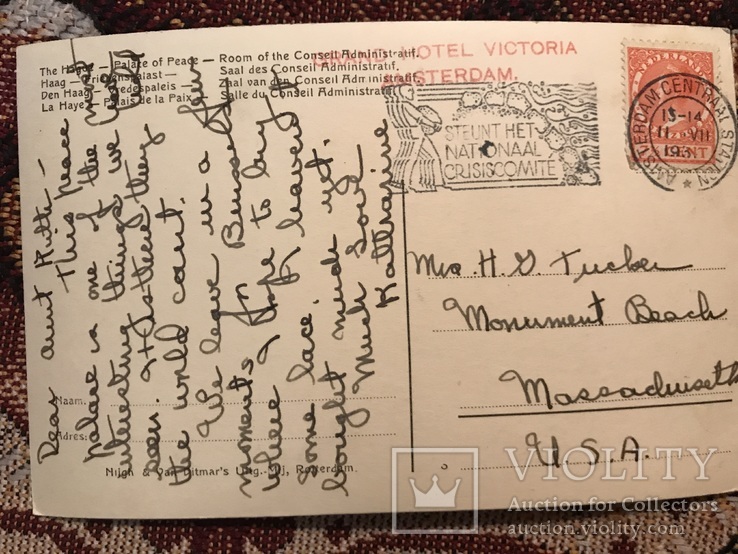 The Hague — Palace of Peace — Room of the Conseil Administratif.
Haag — Friedenspalast — Saal des Conseil Administratif.
Den Haag — Vredespaleis — Zaal van den Conseil Administratif.
La Haye — Palais de la Paix — Salle du Conseil Administratif.
HOTEL VICTORIA
AMSTERDAM.
NEDERLAND
STEUNT HET
NATIONAAL
CRISISCOMITÉ
AMSTERDAM CENTRAAL STATION
13-14
11 VII
193
Dear Aunt
This peace
palace is one of the most
interesting things we have
seen. It is there they
the world court.
We leave in a few
moments for Brussels
where I hope to buy
some lace. Haven't
bought much yet.
Much Love
Katharine
Mrs. H. G. Tucker
Monument Beach
Massachusetts
U.S.A.
Naam:
Adres:
Nijgh & Van Ditmar's Uitg.-Mij, Rotterdam.
VIOLITY
Auction for Collectors
auction.violity.com